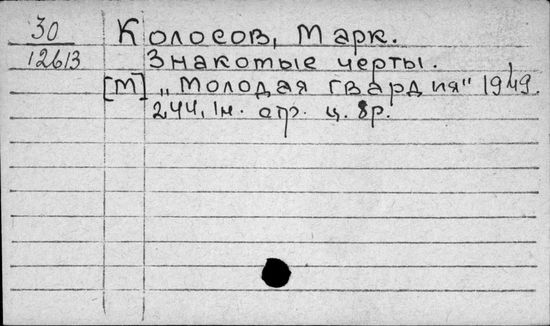 30 Колосов, Марк.
12613 Знакомые черты.
[М] „Молодая гвардия" 1949.
244, 1н. стр. ц. 8р.